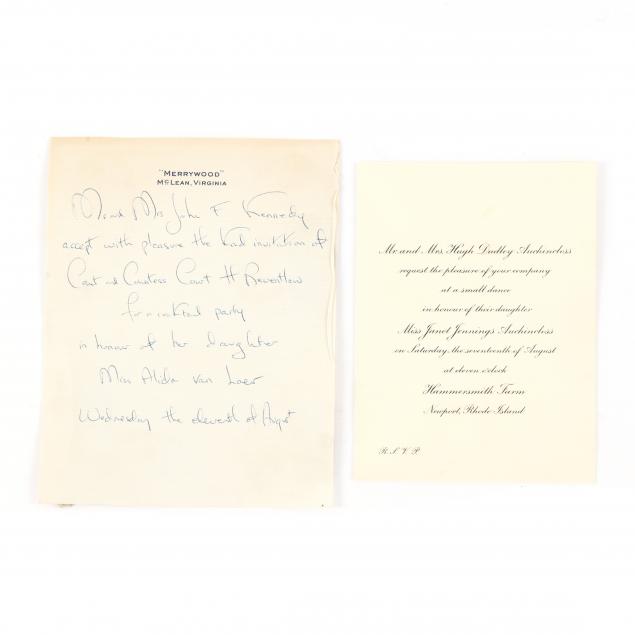 "MERRYWOOD"
MCLEAN, VIRGINIA
Mr and Mrs John F Kennedy
accept with pleasure the kind invitation of
Count and Countess Court H Reventlow
for cocktail party
in honour of her daughter
Miss Alida van Laer
Wednesday the eleventh of August
Mr. and Mrs. Hugh Dudley Auchincloss
request the pleasure of your company
at a small dance
in honour of their daughter
Miss Janet Jennings Auchincloss
on Saturday, the seventeenth of August
at eleven o'clock
Hammersmith Farm
Newport, Rhode Island
R. S. V. P.